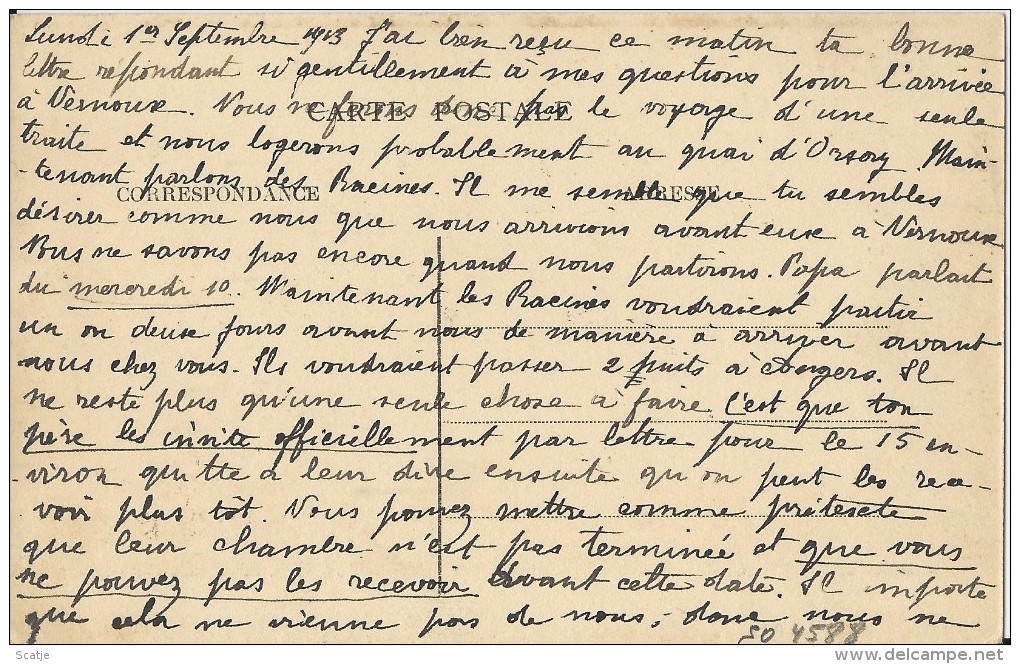 Lundi 1er Septembre 1913 J'ai bien reçu ce matin ta bonne
lettre répondant si gentillement à mes questions pour l'arrivée
à Vernoux. Nous ne ferons pas le voyage d'une seule
CARTE POSTALE
traite et nous logerons probablement au quai d'Orsay. Main-
-tenant parlons des Racines. Il me semble que tu sembles
CORRESPONDANCE ADRESSE
désirer comme nous que nous arrivions avant eux à Vernoux
Nous ne savons pas encore quand nous partirons. Papa parlait
du mercredi 10. Maintenant les Racines voudraient partir
un ou deux jours avant nous de manière à arriver avant
nous chez vous. Ils voudraient passer 2 nuits à Angers. Il
ne reste plus qu'une seule chose à faire c'est que ton
père les invite officiellement par lettre pour le 15 en-
-viron quitte à leur dire ensuite qu'on peut les rece-
-voir plus tôt. Vous pouvez mettre comme prétexte
que leur chambre n'est pas terminée et que vous
ne pouvez pas les recevoir avant cette date. Il importe
que cela ne vienne pas de nous; donc nous ne
50 4588
delcampe.net